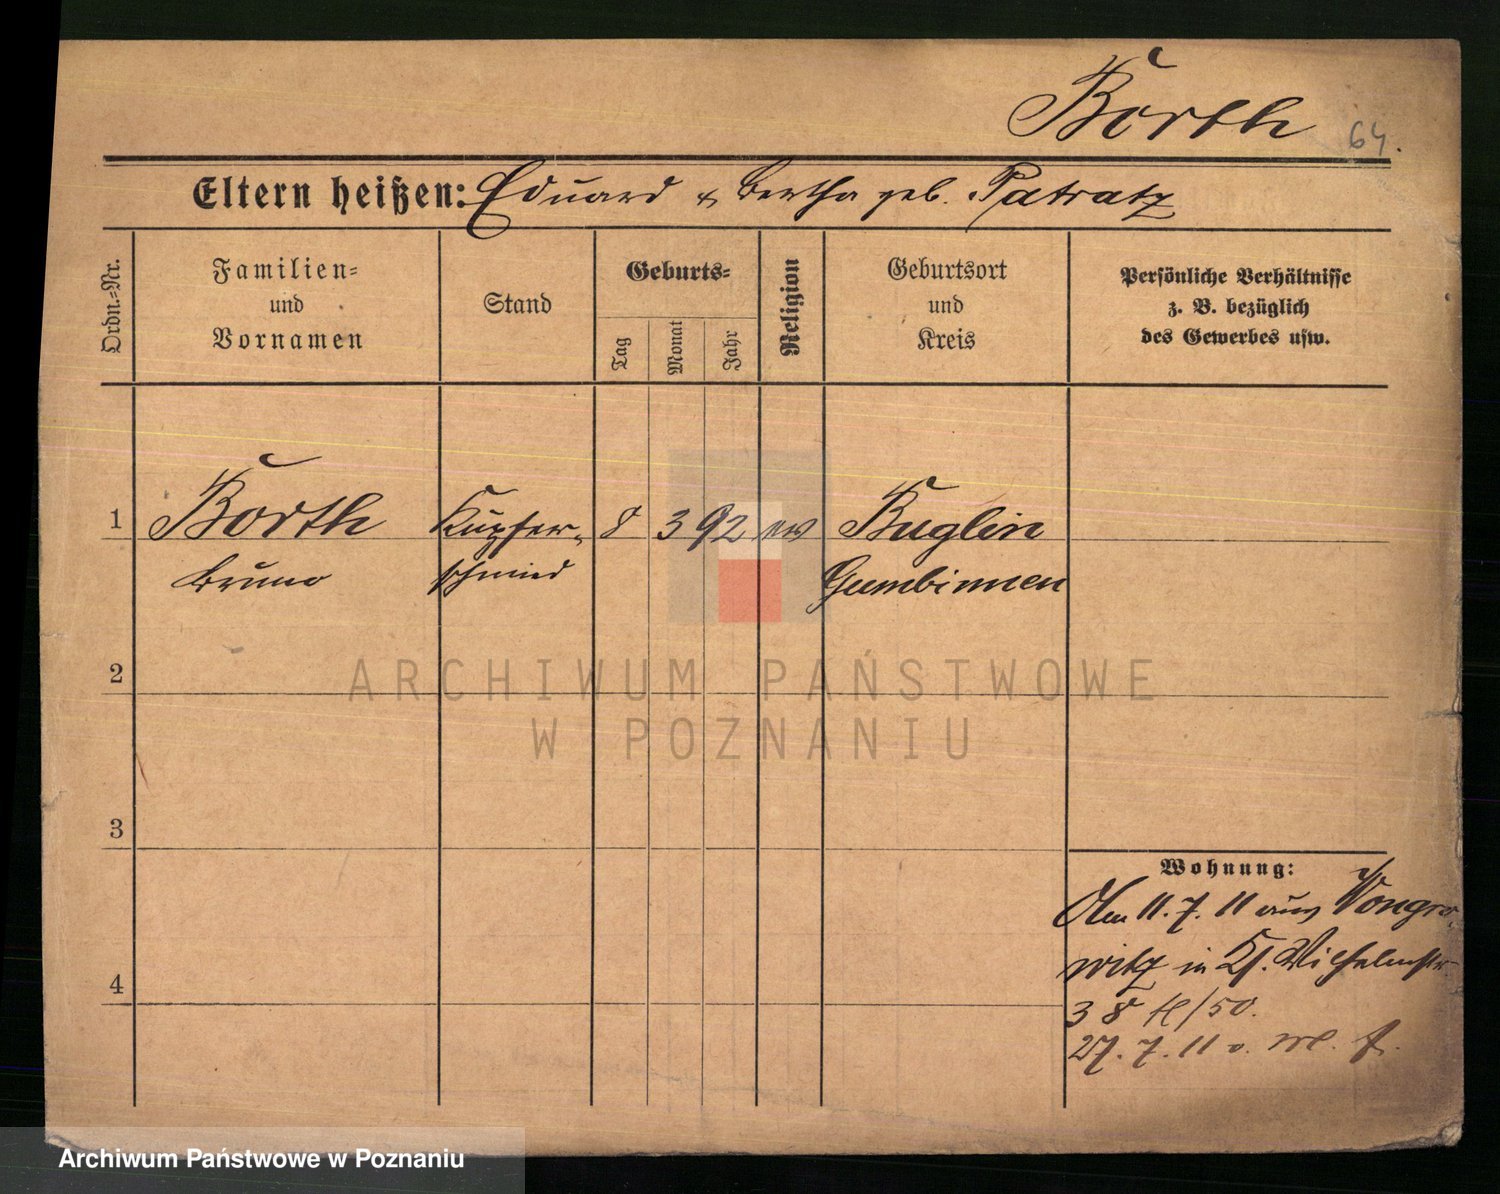 Borth 64.
Eltern heißen: Eduard & Bertha geb. Patratz
Ordn.=Nr.
Familien=
und
Vornamen
Stand
Geburts=
Tag
Monat
Jahr
Religion
Geburtsort
und
Kreis
Persönliche Verhältnisse
z. B. bezüglich
des Gewerbes usw.
1 Borth Kupfer- 8 3 92 ev Kuglin
Bruno schmied Gumbinnen
2
3
4
Wohnung:
Am 11. 7. 11 aus Wongro-
witz in Kl. Wilhelmstr.
38 /50.
27. 7. 11
ARCHIWUM PAŃSTWOWE
W POZNANIU
Archiwum Państwowe w Poznaniu